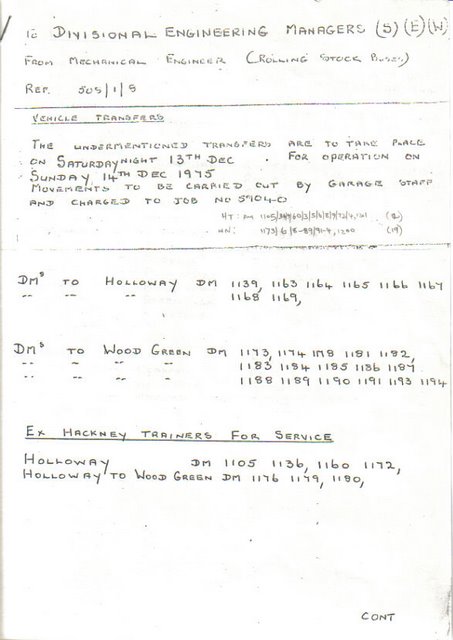 To DIVISIONAL ENGINEERING MANAGERS (S) (E) (W)
FROM MECHANICAL ENGINEER (ROLLING STOCK BUSES)
REF. 505/1/8
VEHICLE TRANSFERS
THE UNDERMENTIONED TRANSFERS ARE TO TAKE PLACE
ON SATURDAY NIGHT 13TH DEC . FOR OPERATION ON
SUNDAY, 14TH DEC 1975
MOVEMENTS TO BE CARRIED OUT BY GARAGE STAFF
AND CHARGED TO JOB NO 57040
HT: DM
WN: (19)
DMs TO HOLLOWAY DM 1139, 1163 1164 1165 1166 1167
-- -- -- 1168 1169,
DMs TO WOOD GREEN DM 1173, 1174 1178 1181 1182,
-- -- -- -- 1183 1184 1185 1186 1187
-- -- -- -- 1188 1189 1190 1191 1193 1194
EX HACKNEY TRAINERS FOR SERVICE
HOLLOWAY DM 1105 1136, 1160 1172,
HOLLOWAY TO WOOD GREEN DM 1176 1179, 1180,
CONT